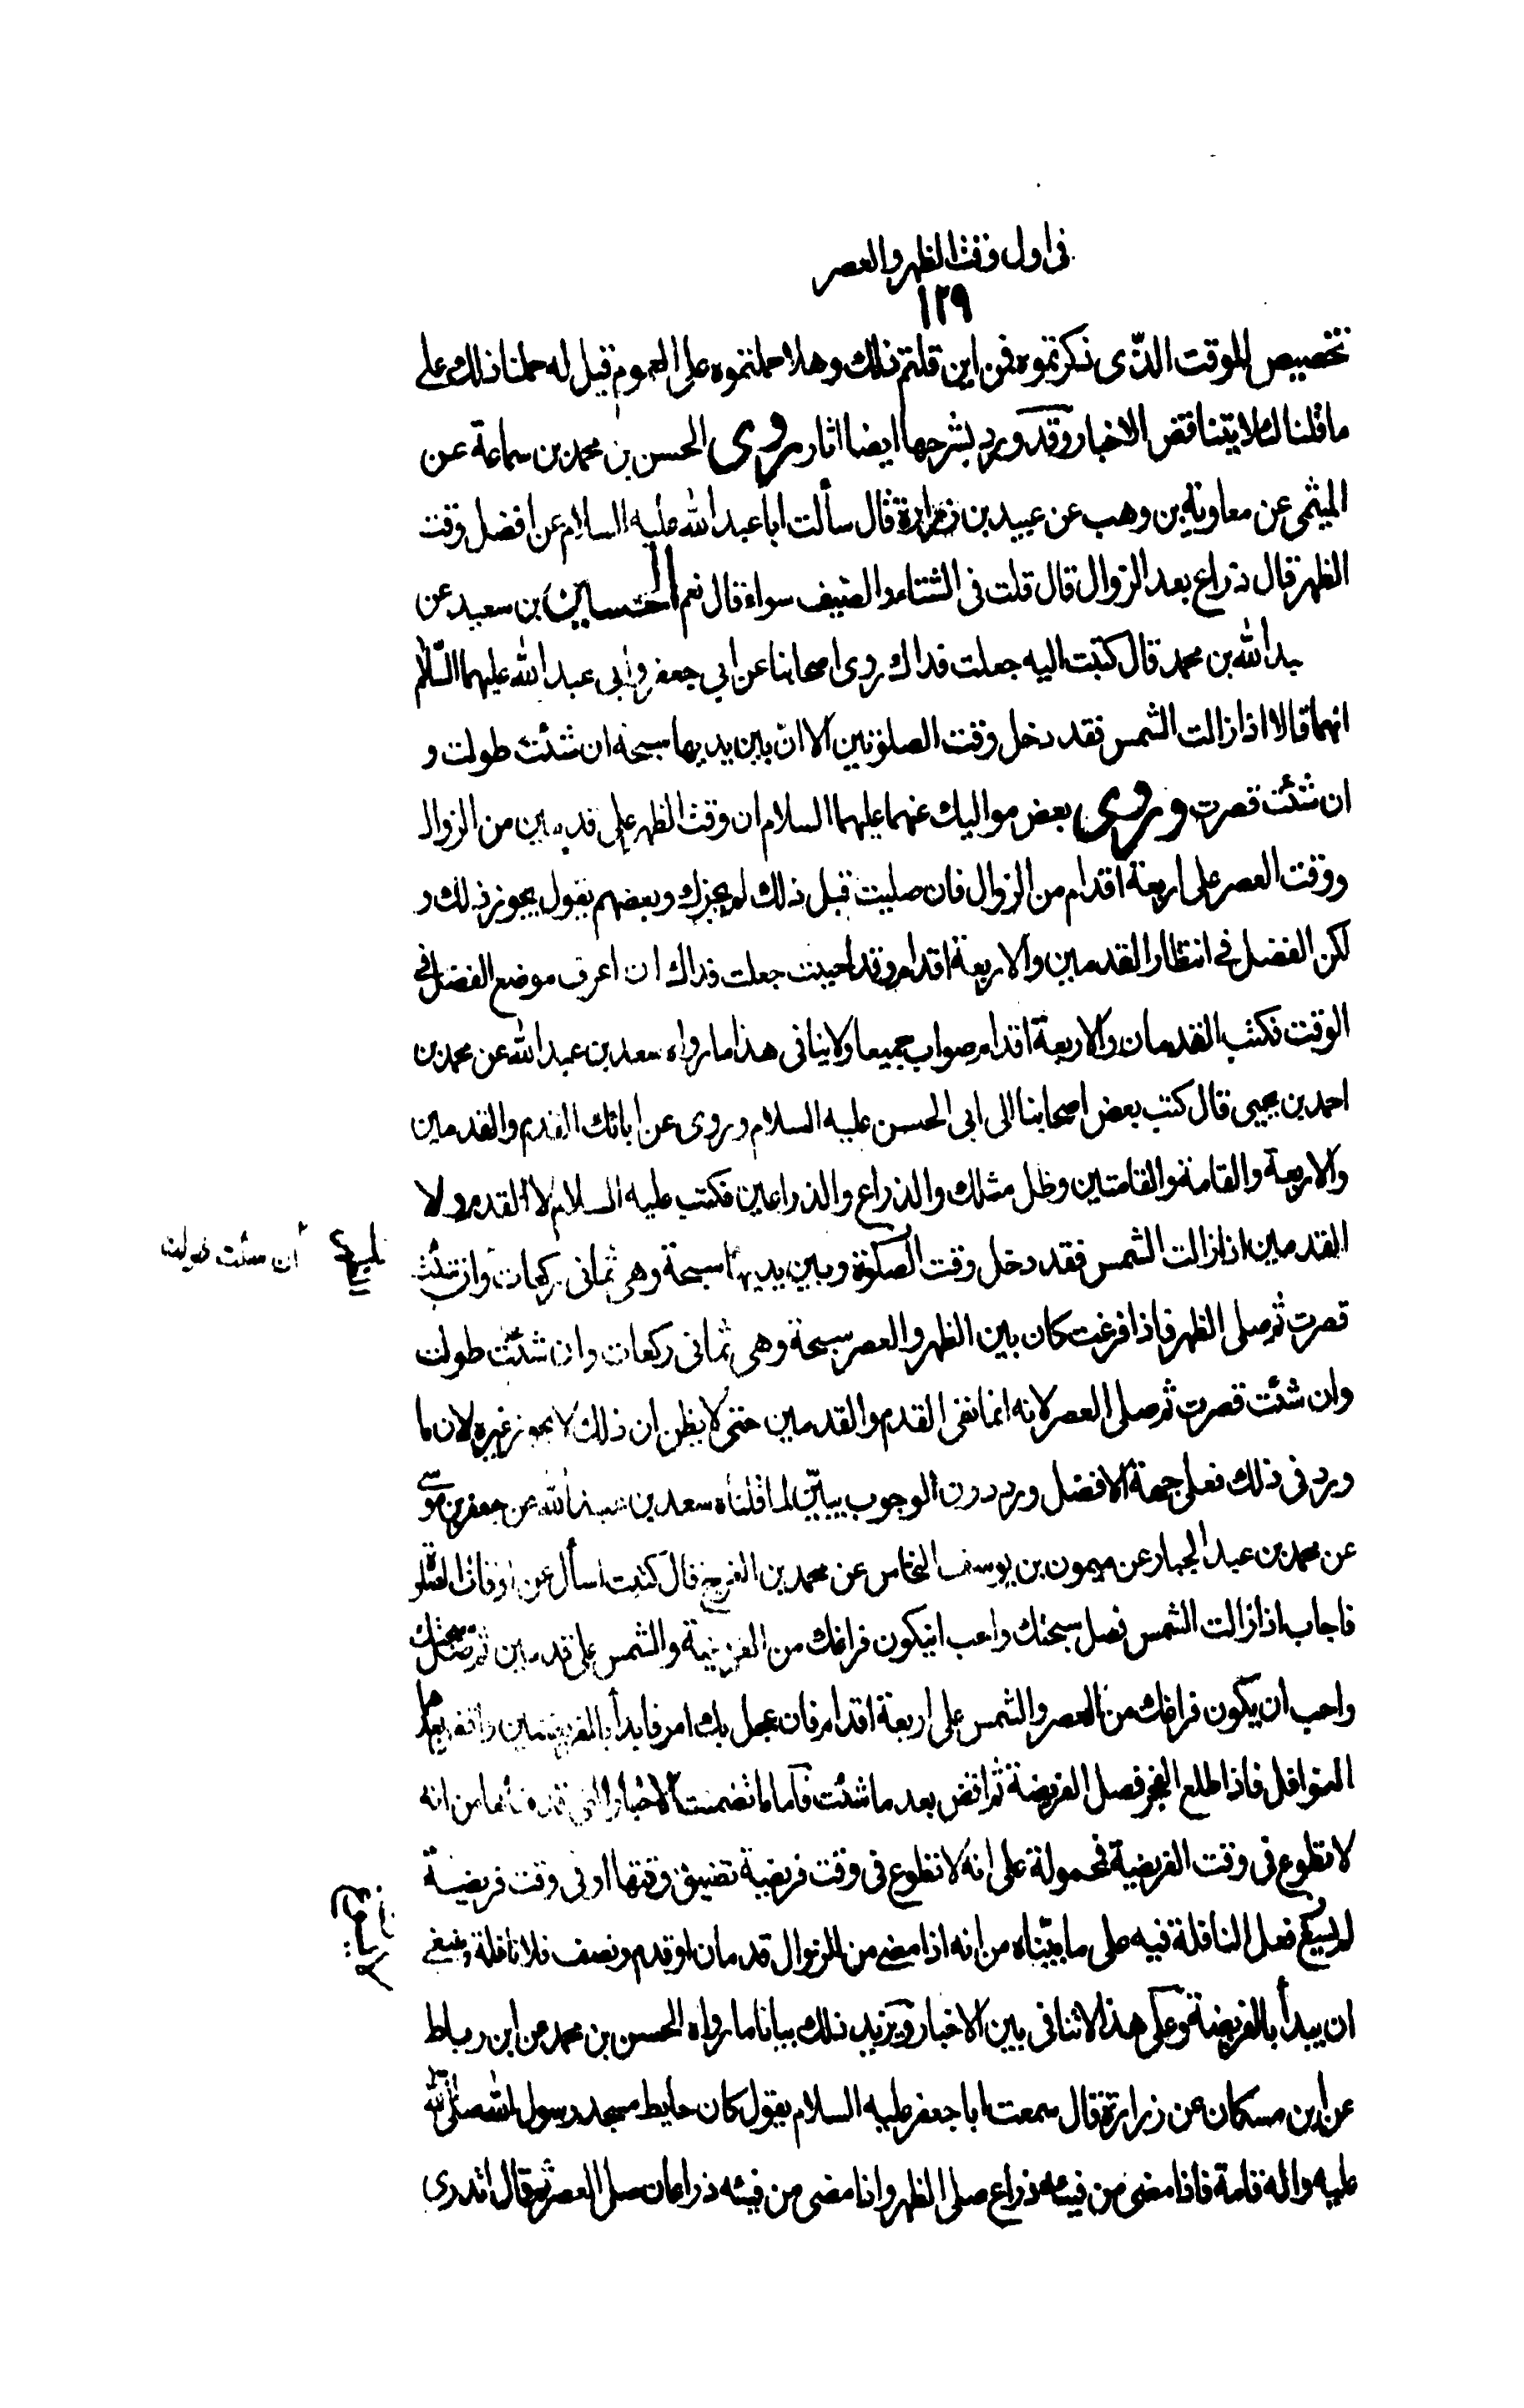 في اول وقت الظهر والعصر
١٢٩
تخصيص للوقت الذّى ذكرتموه فمن اين قلتم ذلك وهلا حملتموه على العموم قيل له حملنا ذلك على
ما قلنا لئلا يتناقض الاخبار وقد ورد بشرحها ايضا اثار روى الحسن بن محمد بن سماعة عن
الميثمى عن معاوية بن وهب عن عبيد بن زرارة قال سألت ابا عبد الله عليه السلام عن افضل وقت
الظهر قال ذراع بعد الزوال قال قلت فى الشتاء والصيف سواء قال نعم الحسين بن سعيد عن
بد الله بن محمد قال كتبت اليه جعلت فداك روى اصحابنا عن ابي جعفر وابى عبد الله عليهما السّلام
انهما قالا اذا زالت الشمس فقد دخل وقت الصلوتين الا انّ بين يديها سبحة ان شئت طولت و
ان شئت قصرت وروى بعض مواليك عنهما عليهما السلام ان وقت الظهر على قدمين من الزوال
ووقت العصر على اربعة اقدام من الزوال فان صليت قبل ذلك لم يجزك وبعضهم يقول يجوز ذلك و
لكن الفضل في انتظار القدمين والاربعة اقدام وقد احببت جعلت فداك ان اعرف موضع الفضل في
الوقت فكتب القدمان والاربعة اقدام صواب جميعا ولا ينافى هذا ما رواه سعد بن عبد الله عن محمد بن
احمد بن يحيى قال كتب بعض اصحابنا الى ابى الحسن عليه السلام وروى عن ابائك القدم والقدمين
والاربعة والقامة والقامتين وظل مثلك والذراع والذراعين فكتب عليه السلام لا القدم ولا
القدمين اذا زالت الشمس فقد دخل وقت الصلوة وبين يديها سبحة وهى ثمانى ركعات وان شئت
ان شئت طولت
قصرت ثم صلى الظهر فاذا فرغت كان بين الظهر والعصر سبحة وهى ثمانى ركعات وان شئت طولت
وان شئت قصرت ثم صلى العصر لانه انما نفى القدم والقدمين حتى لا يظن ان ذلك لا يجوز غيره لان ما
ورد فى ذلك فعلى جهة الافضل ورد دون الوجوب يبيّن لما قلناه سعد بن عبد الله عن جعفر بن موسى
عن محمد بن عبد الجبار عن ميمون بن يوسف النخاس عن محمد بن الفرج قال كتبت اسأل عن اوقات الصلوة
فاجاب اذا زالت الشمس فصل سبحتك واحب ان يكون فراغك من الفريضة والشمس على قدمين ثم صل سبحتك
واحب ان يكون فراغك من العصر والشمس على اربعة اقدام فان عجل بك امر فابدأ بالفريضتين واقض بعدهما
النوافل فاذا طلع الفجر فصل الفريضة ثم اقض بعد ما شئت فاما ما تضمنت الاخبار التى من انه
لا تطوع فى وقت الفريضة فمحمولة على انه لا تطوع فى وقت فريضة تضيق وقتها او فى وقت فريضة
لم يسغ فعل النافلة فيه على ما بيّناه من انه اذا مضى من الزوال قدمان او قدم ونصف فلا نافلة وينبغي
ان يبدأ بالفريضة وعلى هذا لا تنافى بين الاخبار ويزيد ذلك بيانا ما رواه الحسن بن محمد عن ابن رباط
عن ابن مسكان عن زرارة قال سمعت ابا جعفر عليه السلام يقول كان حايط مسجد رسول الله صلى الله
عليه واله قامة فاذا مضى من فيئه ذراع صلى الظهر واذا مضى من فيئه ذراعان صلى العصر ثم قال اتدرى